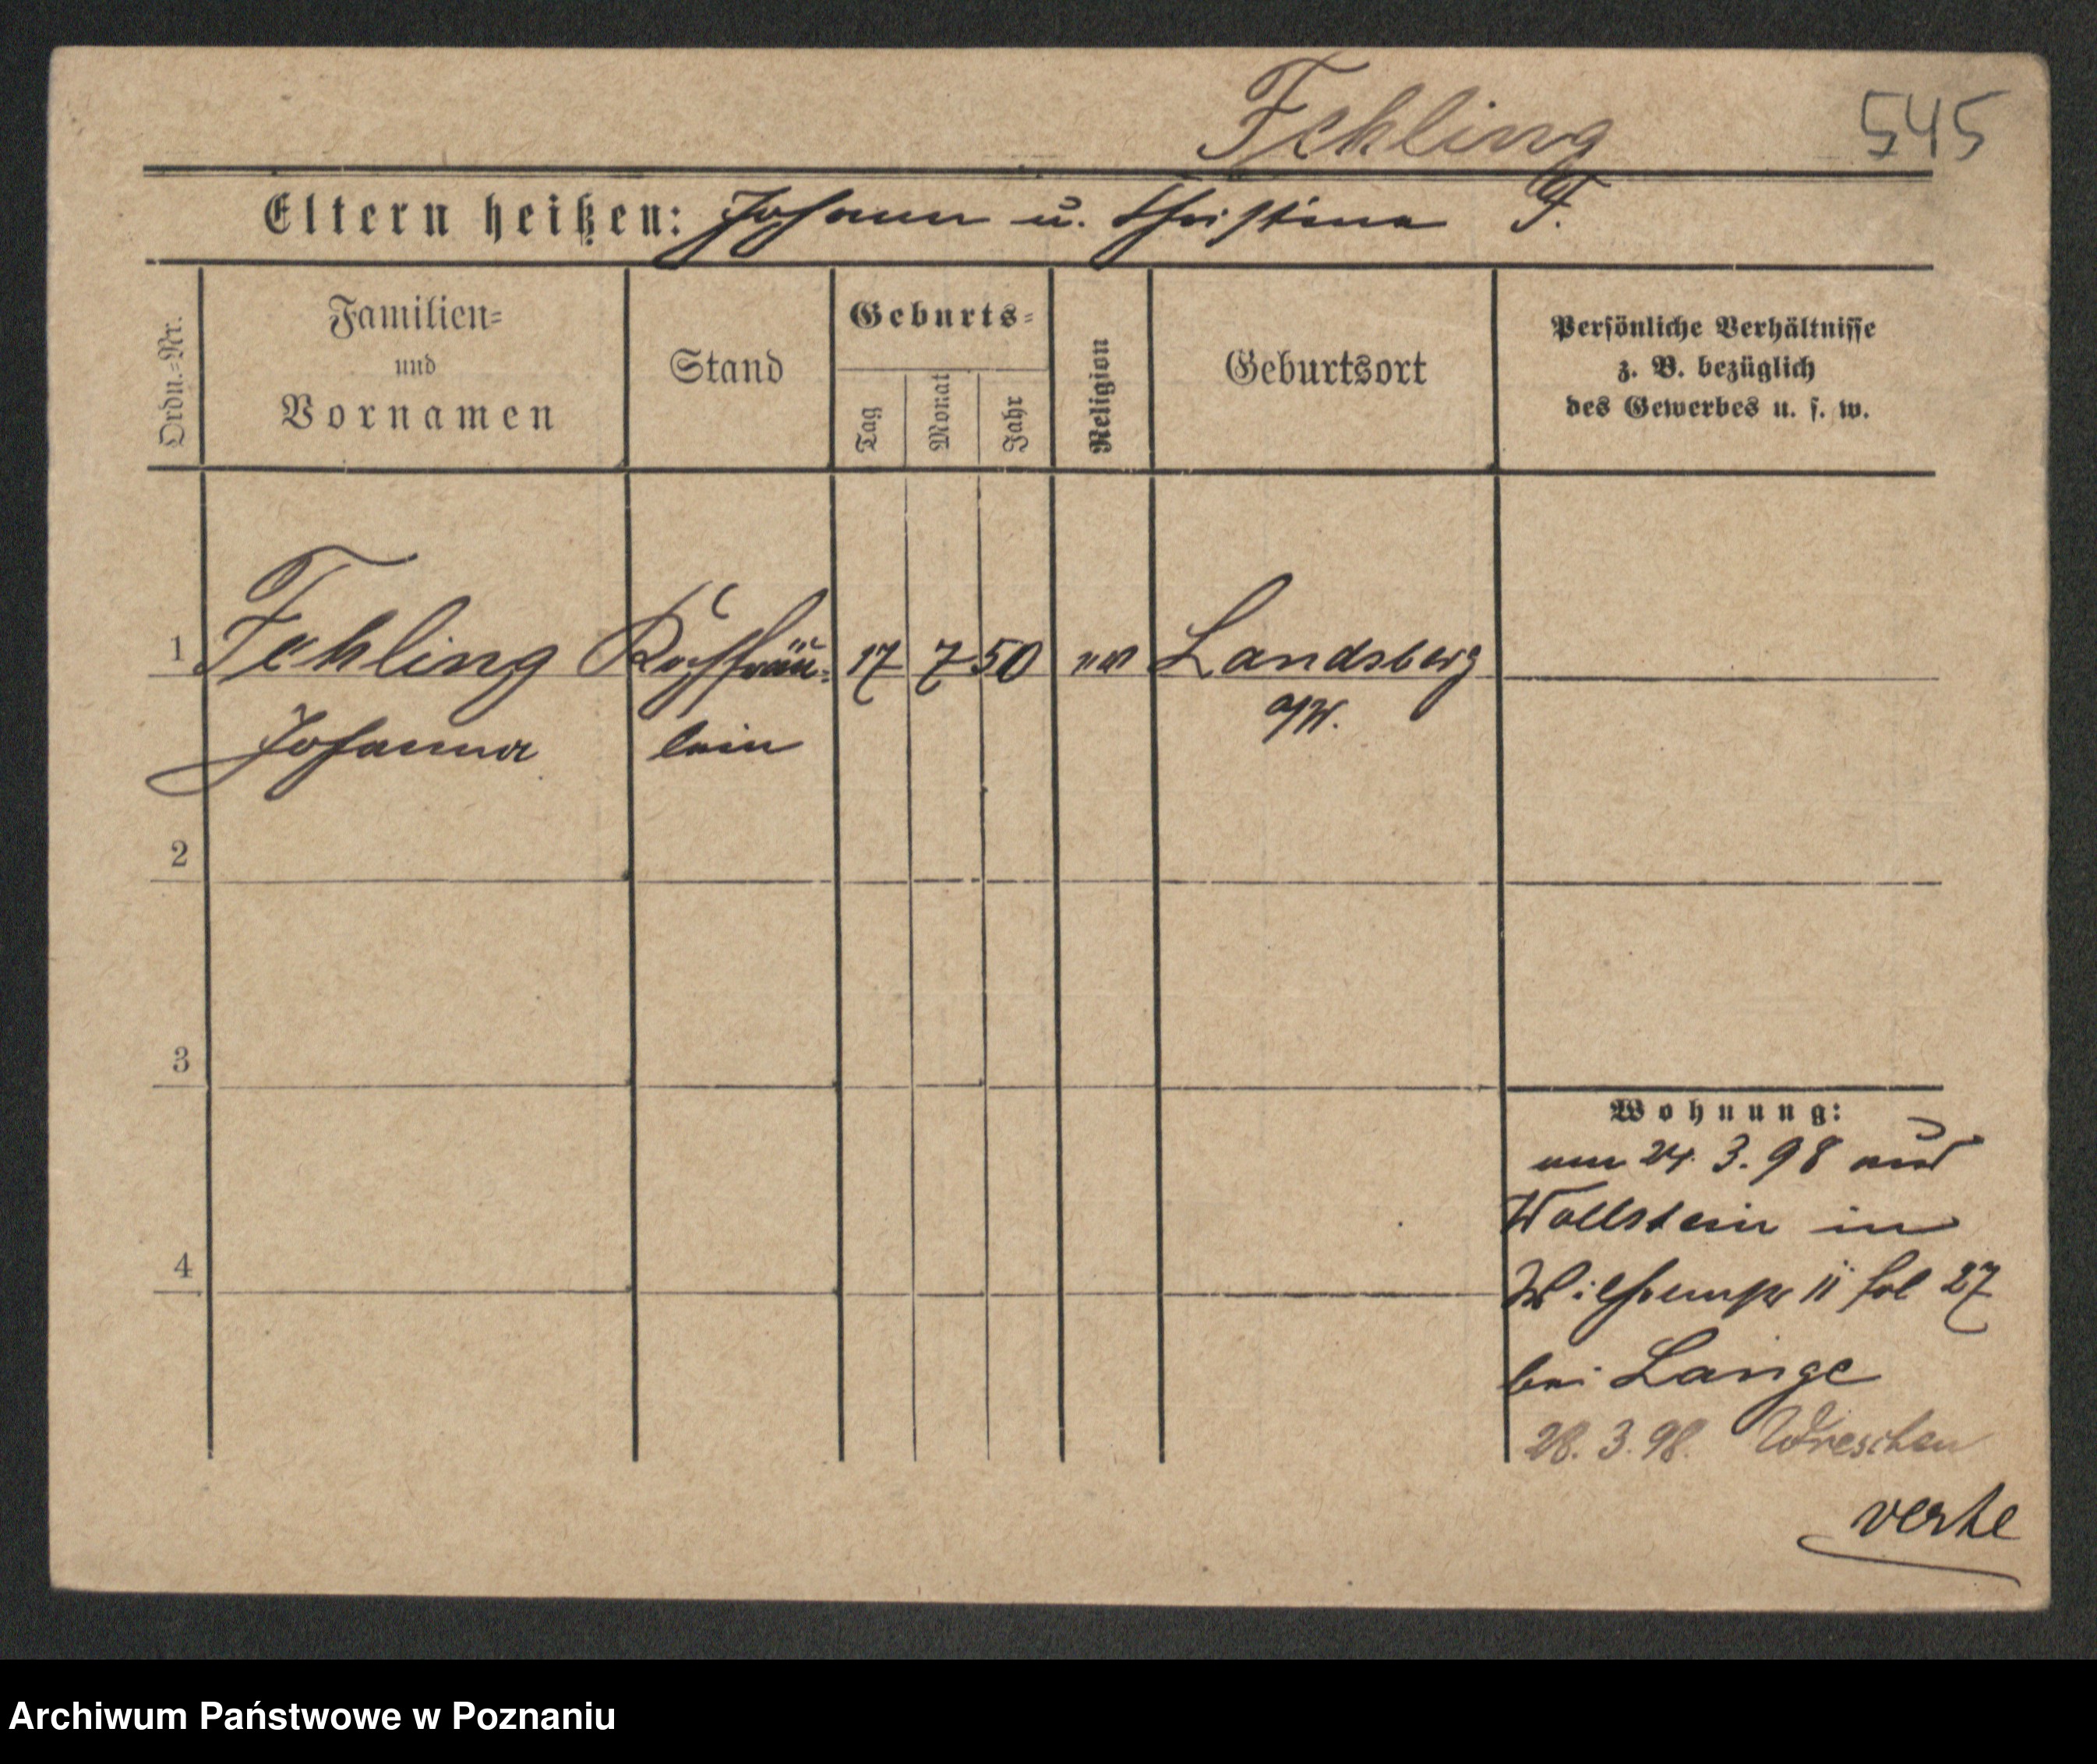 Fehling 545
Eltern heißen: Johann u. Christine F.
Ordn.=Nr.
Familien=
und
Vornamen
Stand
Geburts=
Tag
Monat
Jahr
Religion
Geburtsort
Persönliche Verhältnisse
z. B. bezüglich
des Gewerbes u. s. w.
1 Fehling Kochfräu= 17 7 50 ev Landsberg
Johanna lein a/W.
2
3
4
Wohnung:
am 24. 3. 98 aus
Wollstein in
II fol 27
bei Lange
28. 3. 98. Wreschen
verte
Archiwum Państwowe w Poznaniu